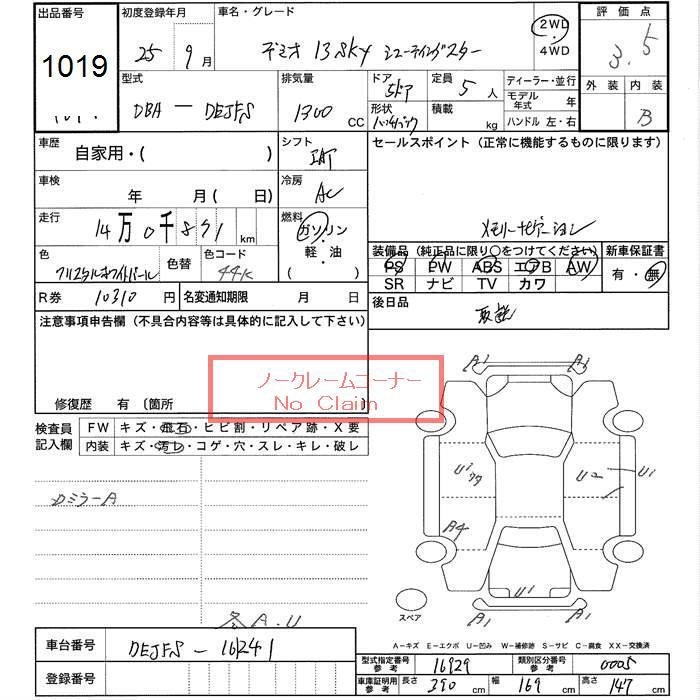 出品番号 初度登録年月 車名・グレード 評価点
1019 25 9月 デミオ 13Sky シューティングスター 2WD・4WD 3.5
型式 排気量 ドア 定員 5人 ディーラー・並行 外装 内装
DBA - DEJFS 1300 CC 5ドア 形状 ハッチバック 積載 kg モデル年式 年 ハンドル 左・右 B
車歴 自家用・( ) シフト セールスポイント(正常に機能するものに限ります)
車検 年 月(日) 冷房 AC
走行 14万0千891km 燃料 ガソリン・軽・油( ) メモリーナビゲーション
色 クリスタルホワイトパール 色替 色コード 44K
装備品(純正品に限り○をつけてください) 新車保証書
PS PW ABS エアB AW 有・無
SR ナビ TV カワ
R券 10310円 名変通知期限 月 日 後日品 取説
注意事項申告欄(不具合内容等は具体的に記入して下さい)
ノークレームコーナー
No Claim
修復歴 有〔箇所 〕
検査員記入欄 FW キズ・飛石・ヒビ割・リペア跡・X要
内装 キズ・汚レ・コゲ・穴・スレ・キレ・破レ
A1 A1
U1 U2 U1
A4
U1
A1 A1
スペア
A.U
A-キズ E-エクボ U-凹み W-補修跡 S-サビ C-腐食 XX-交換済
車台番号 DEJFS - 161241
登録番号
型式指定番号参考 16929 類別区分番号参考 0005
車庫証明用参考 長さ 390cm 幅 169cm 高さ 147cm